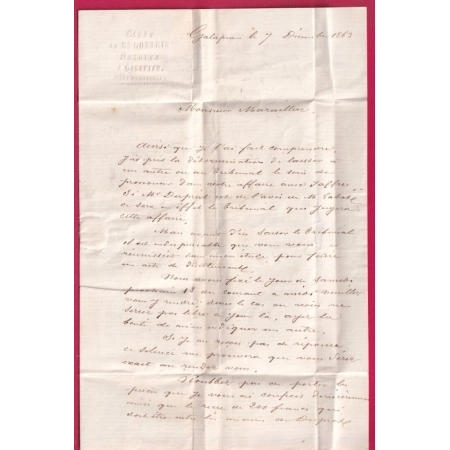 Galapian le 7 Décembre 1863
Monsieur Marcellac.
Ainsi que je l'ai fait comprendre
j'ai pris la détermination de laisser à
un autre ou au Tribunal le soin de
prononcer dans notre affaire avec Jaffre.
Si Mr Duprat est de l'avis de Mr
ce sera en effet le Tribunal qui jugera
cette affaire.
Mais avant d'en saisir le Tribunal
il est indispensable que nous nous
réunissions dans mon étude pour faire
un acte de
Nous avons fixé le jour de Samedi
prochain 12 du courant à midi veuillez
vous y rendre; dans le cas où vous ne
seriez pas libre ce jour là, ayez la
bonté de m'en indiquer un autre.
Si je ne reçois pas de réponse
ce silence me prouvera que vous serez
exact au rendez vous.
N'oubliez pas de porter les
pièces que je vous ai confiées dernièrement
ainsi que le reçu de 200 francs qui
doit être entre les mains de Duprat